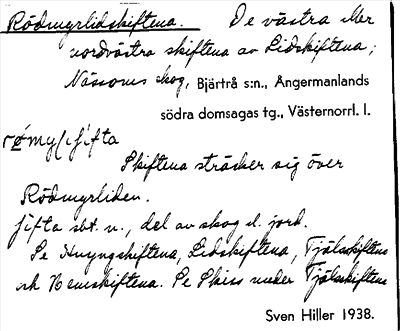 Rödmyrlidskiftena. De västra eller
nordvästra skiftena av Lidskiftena;
Nässoms skog, Bjärtrå s:n., Ångermanlands
södra domsagas tg., Västernorrl. l.
Skiftena sträcker sig över
Rödmyrliden.
sbt. n., del av skog el. jord.
Se skiftena, Lidskiftena, Tjälskiftena
och Hemskiftena. Se Skiss under Tjälskiftena
Sven Hiller 1938.